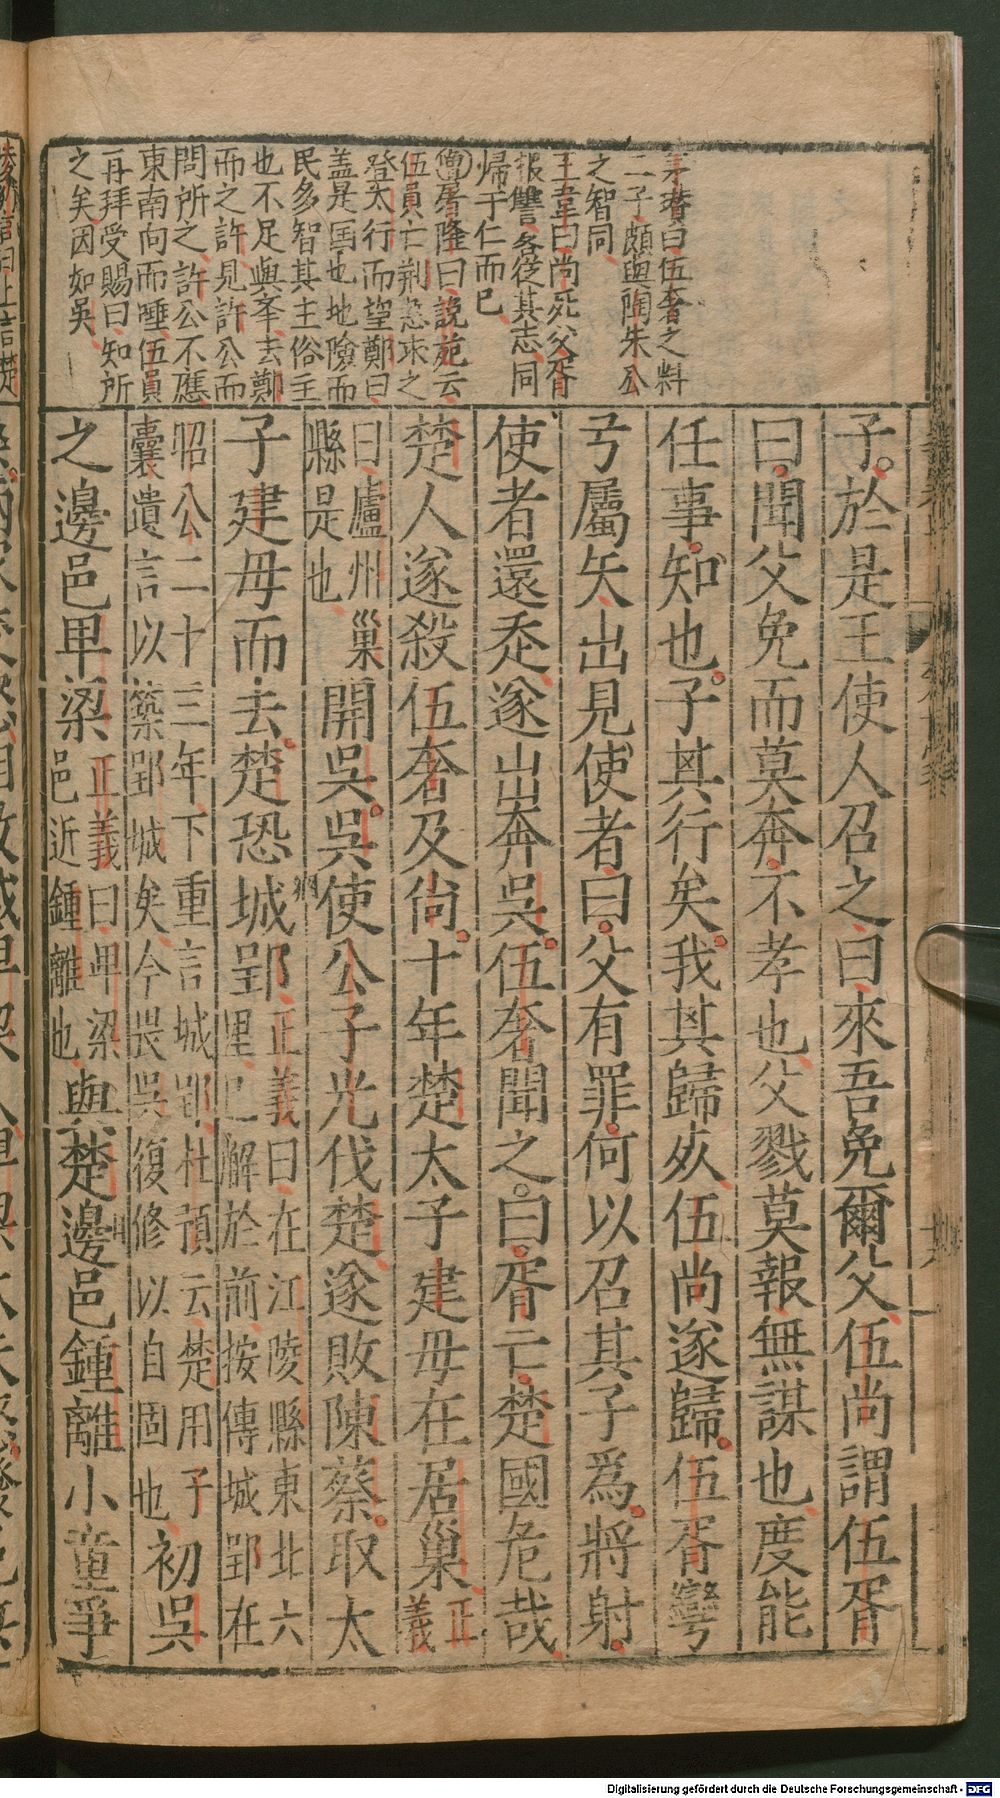 茅瓚曰伍奢之料
二子頗與陶朱公
之智同
王韋曰尚死父胥
報讐各從其志同
歸于仁而已
屠隆曰說苑云
伍員亡荆急求之
登太行而望鄭曰
盖是国也地險而
民多智其主俗主
也不足與举去鄭
而之許見許公而
問所之許公不應
東南向而唾伍員
再拜受賜曰知所
之矣因如吳
子於是王使人召之曰來吾免爾父伍尚謂伍胥
曰聞父免而莫奔不孝也父戮莫報無謀也度能
任事知也子其行矣我其歸死伍尚遂歸伍胥彎
弓屬矢出見使者曰父有罪何以召其子爲將射
使者還走遂出奔吳伍奢聞之曰胥亡楚國危哉
楚人遂殺伍奢及尙十年楚太子建母在居巢正
義
曰廬州巢
縣是也開吳吳使公子光伐楚遂敗陳蔡取太
子建母而去楚恐城郢正義曰在江陵縣東北六
里已解於前按傳城郢在
昭公二十三年下重言城郢杜預云楚用子
囊遺言以築郢城矣今畏吳復修以自固也初吳
之邊邑卑梁正義曰卑梁
邑近鍾離也與楚邊邑鍾離小童爭
Digitalisierung gefördert durch die Deutsche Forschungsgemeinschaft - DFG